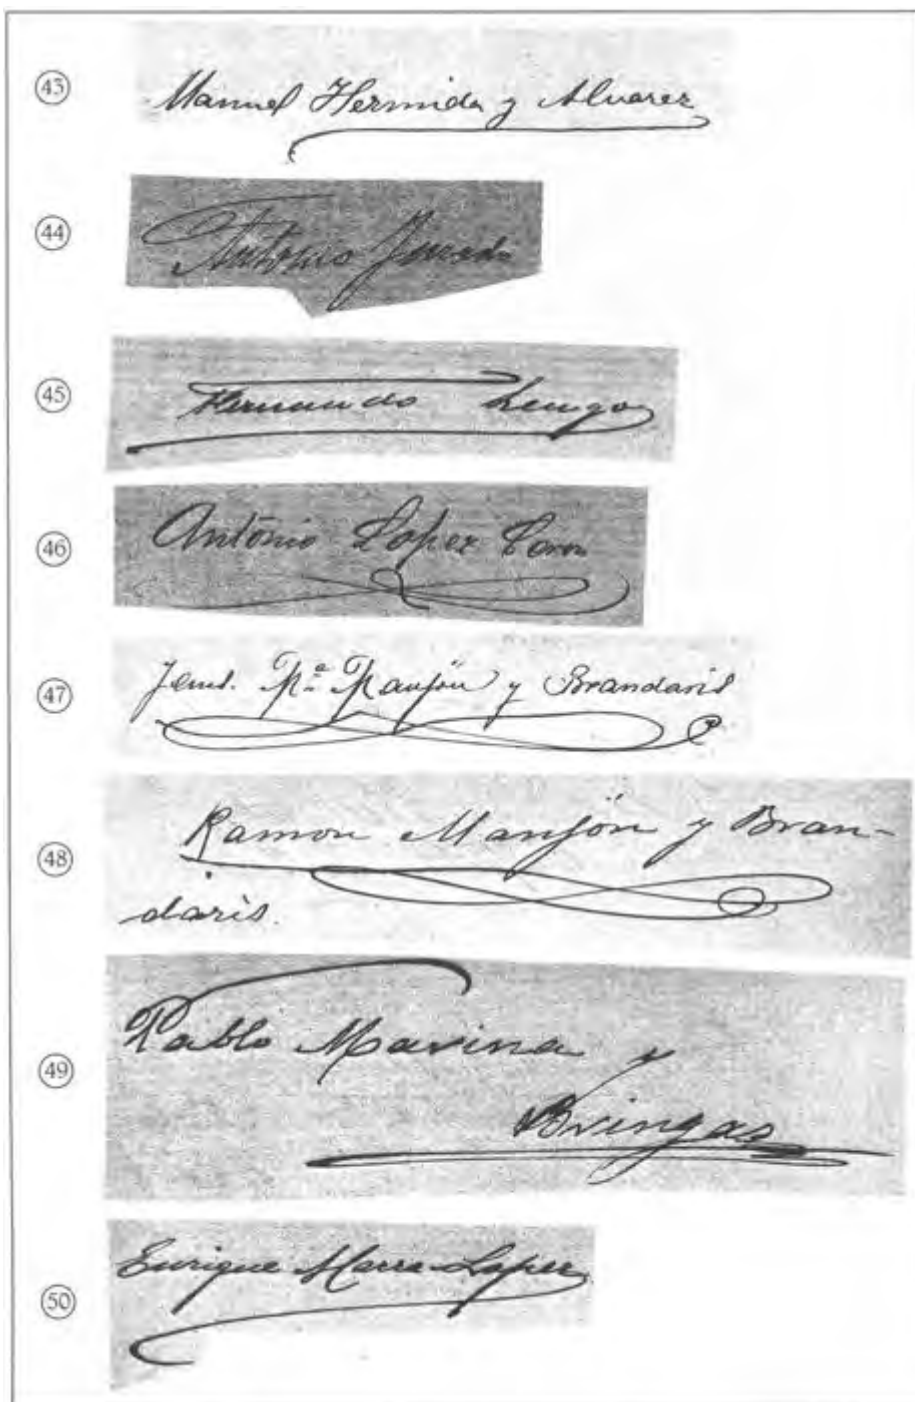 43
Manuel Hermida y Alvarez
44
Antonio Jurado
45
Hernando Luengo
46
Antonio Lopez
47
Pª Manjón y Brandaris
48
Ramon Manjón y Bran-
daris.
49
Pablo Marina y
Bringas
50
Enrique Marra-Lopez